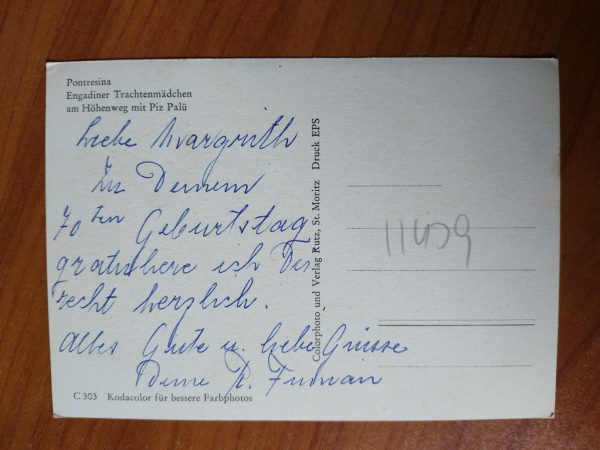 Pontresina
Engadiner Trachtenmädchen
am Höhenweg mit Piz Palü
Liebe Margrith
Zu Deinem
70ten Geburtstag
gratuliere ich Dir
recht herzlich.
Alles Gute u. liebe Grüsse
Deine R.
C 303 Kodacolor für bessere Farbphotos
Colorphoto und Verlag Rutz, St. Moritz Druck EPS